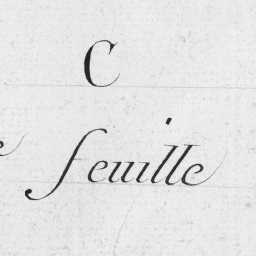 C
feuille